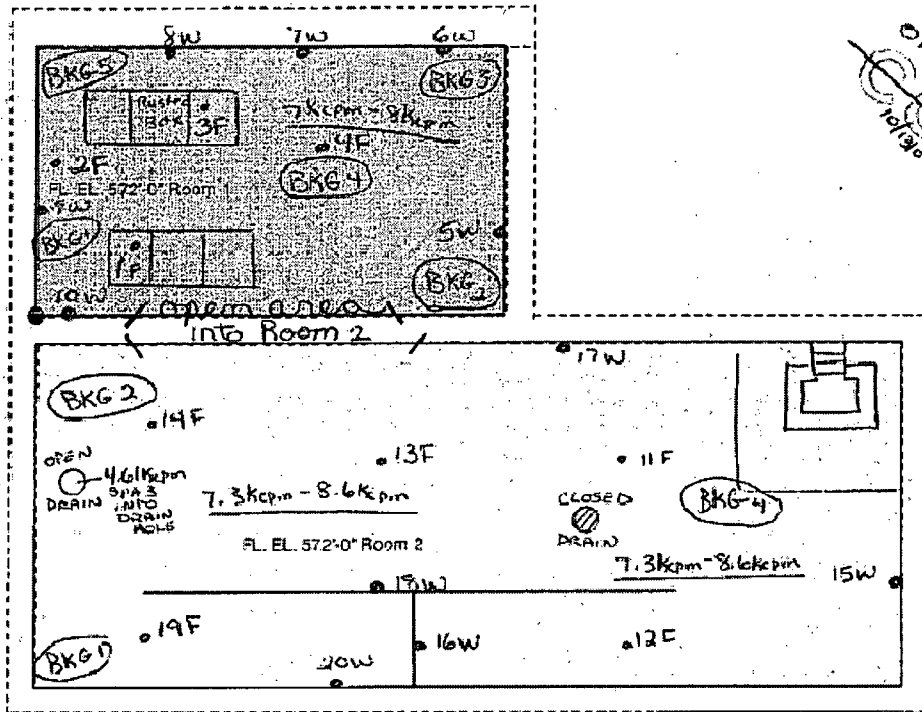 8W 7W 6W
BKG-5
BKG3
Rusted
Box
3F
7Kcpm - 8Kcpm
4F
2F
BKG4
FL. EL. 572'-0" Room 1
9W
5W
1F
BKG
10W
open area
into Room 2
17W
BKG2
14F
OPEN
DRAIN
4.61Kcpm
SPA3
INTO
DRAIN
HOLE
13F
11F
7.3Kcpm - 8.6Kcpm
CLOSED
DRAIN
BKG-4
FL. EL. 572'-0" Room 2
7.3Kcpm - 8.6Kcpm
15W
18W
19F
16W
12F
20W